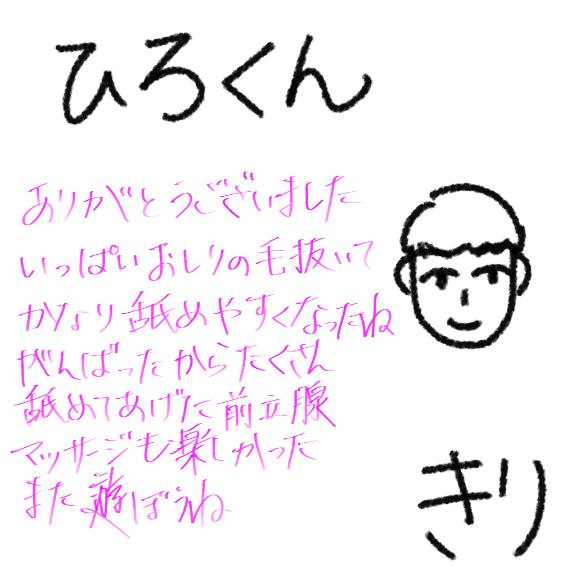 ひろくん
ありがとうございました
いっぱいおしりの毛抜いて
かなり舐めやすくなったね
がんばったからたくさん
舐めてあげた前立腺
マッサージも楽しかった
また遊ぼうね
きり